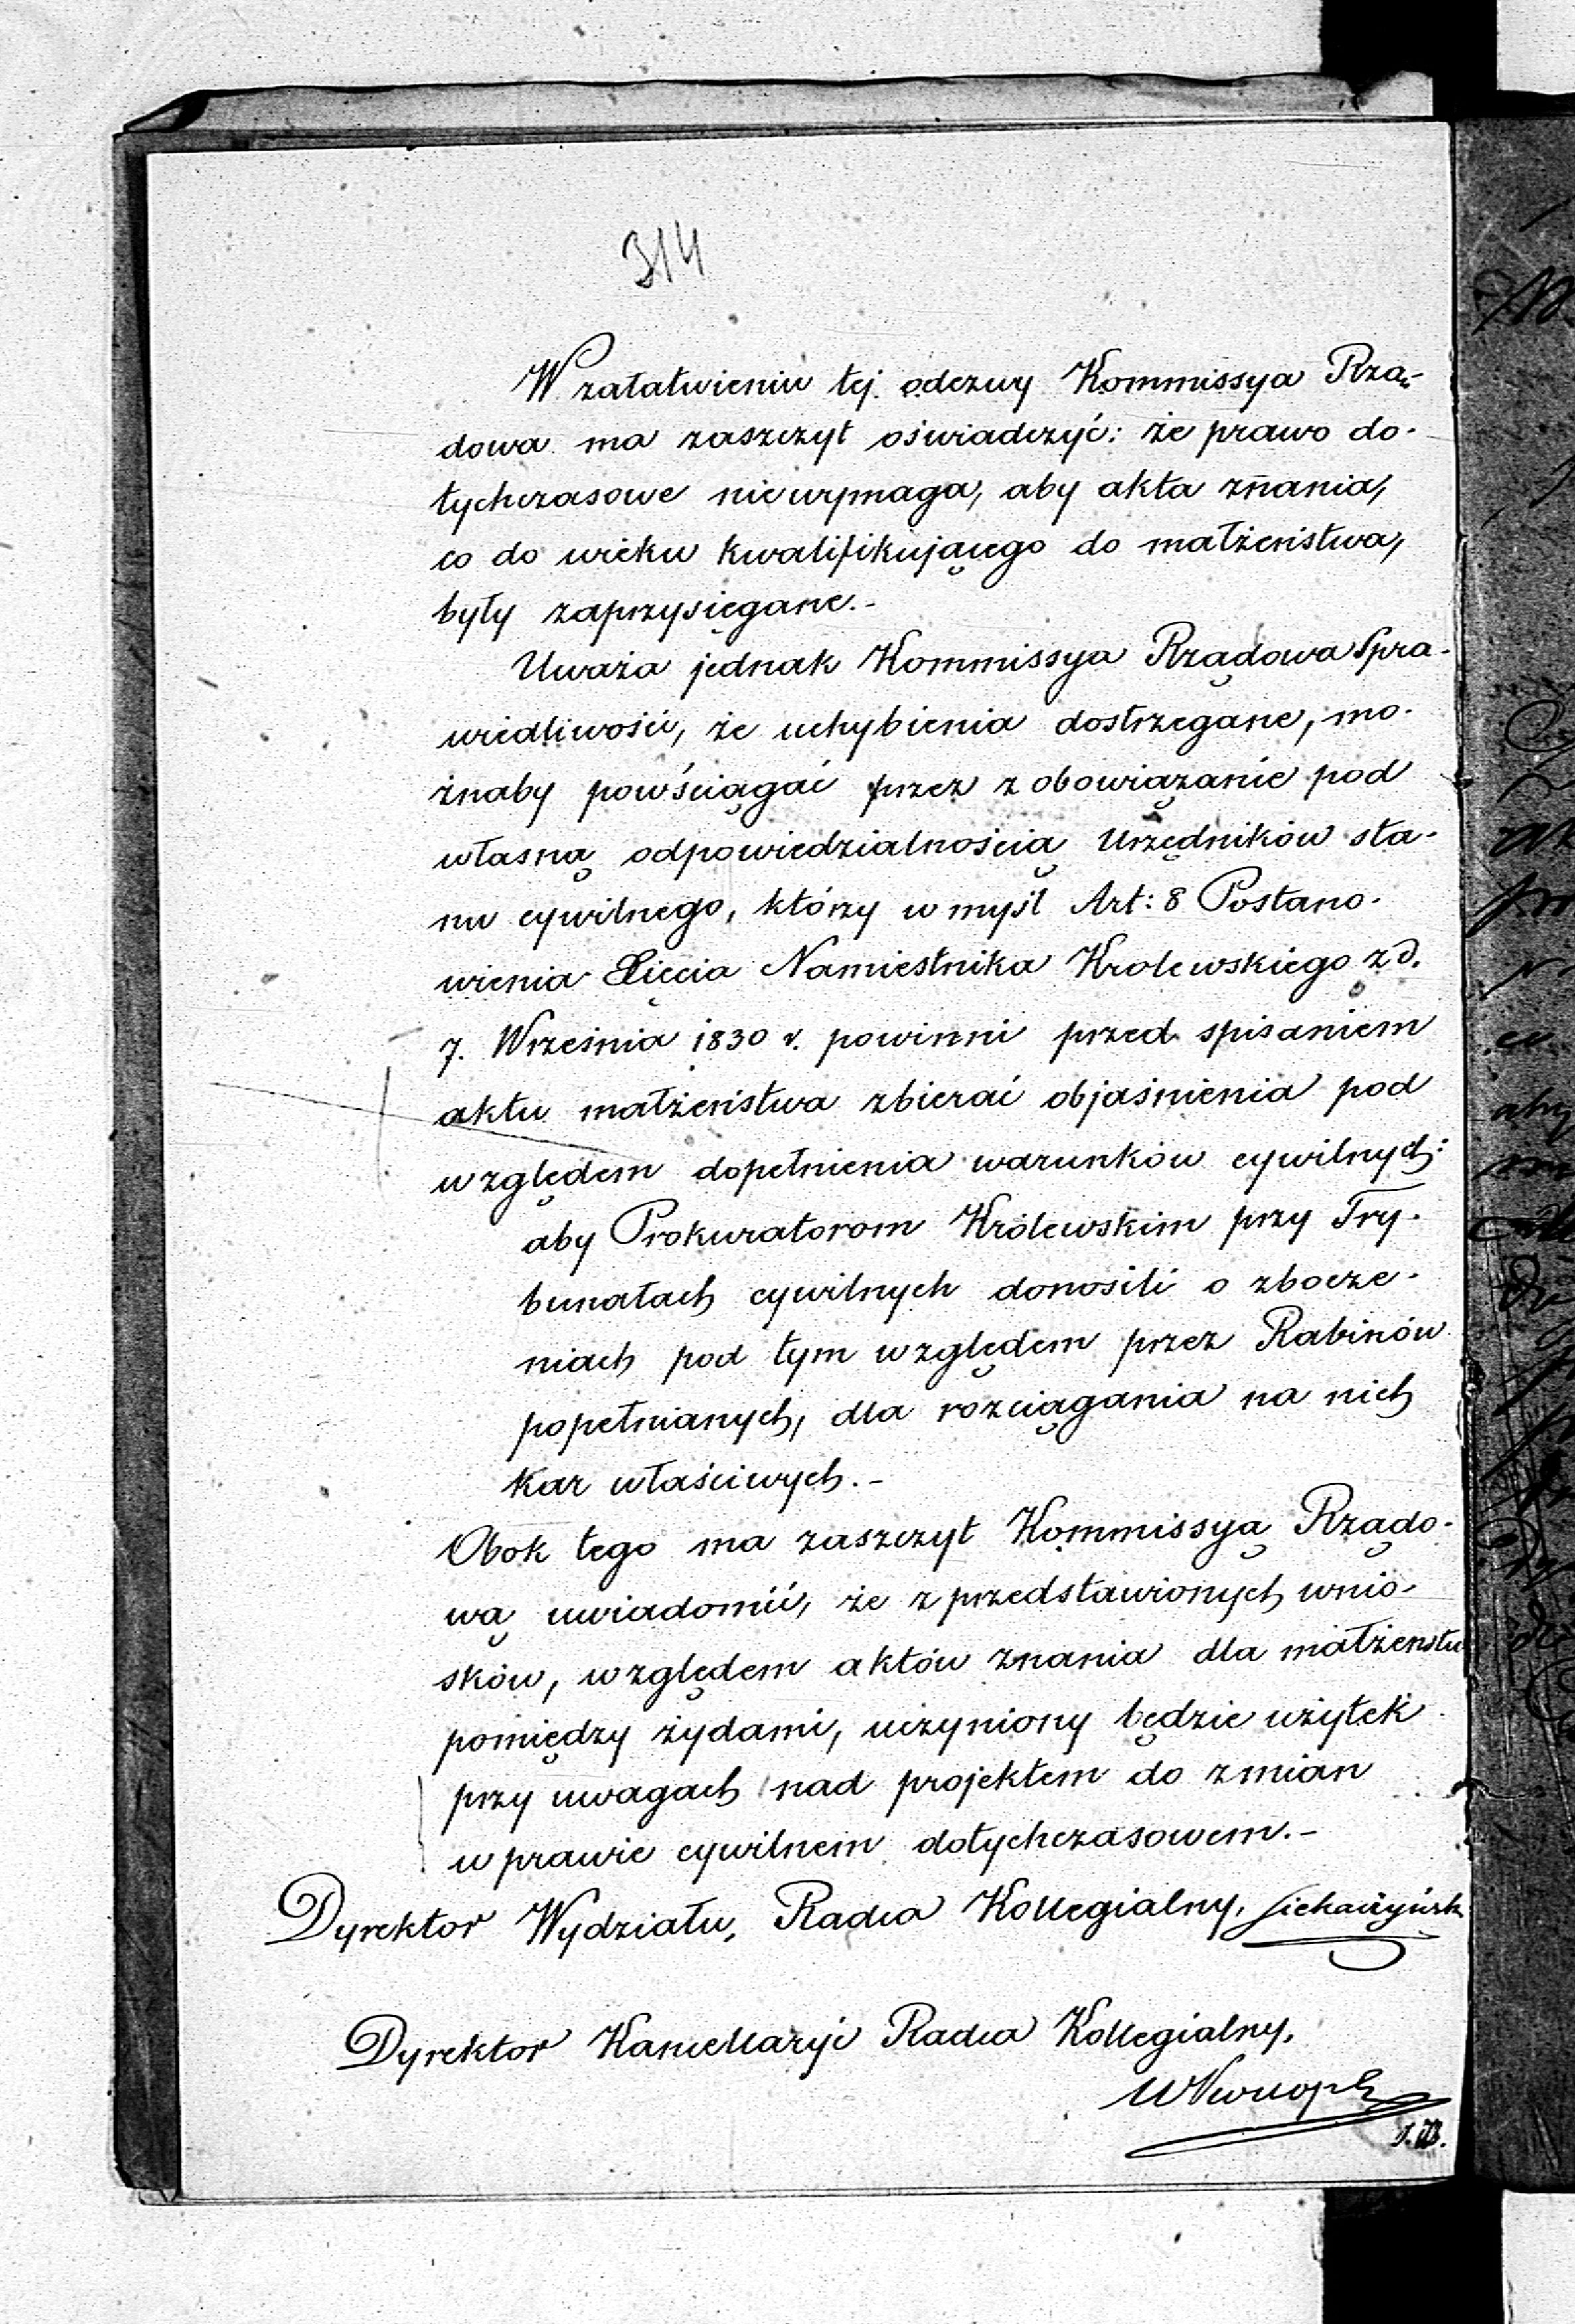 314
W załatwieniu tej odezwy Kommissya Rzą-
dowa ma zaszczyt oświadczyć: że prawo do-
tychczasowe niewymaga, aby akta znania,
co do wieku kwalifikującego do małżeństwa,
były zaprzysięgane.-
Uważa jednak Kommissya Rządowa Spra-
wiedliwości, że uchybienia dostrzegane, mo-
żnaby powściągać przez zobowiązanie pod
własną odpowiedzialnością Urzędników sta-
nu cywilnego, którzy w myśl Art: 8 Postano-
wienia Xięcia Namiestnika Krolewskiego z d.
7. Września 1830 r. powinni przed spisaniem
aktu małżeństwa zbierać objaśnienia pod
względem dopełnienia warunków cywilnych:
aby Prokuratorom Królewskim przy Try-
bunałach cywilnych donosili o zbocze-
niach pod tym względem przez Rabinów
popełnianych, dla rozciągania na nich
kar właściwych.-
Obok tego ma zaszczyt Kommissyą Rządo-
wą uwiadomić, że z przedstawionych wnio-
sków, względem aktów znania dla małżeństw
pomiędzy żydami, uczyniony będzie użytek
przy uwagach nad projektem do zmian
w prawie cywilnem dotychczasowem.-
Dyrektor Wydziału, Radca Kollegialny,
Dyrektor Kancellaryi Radca Kollegialny,